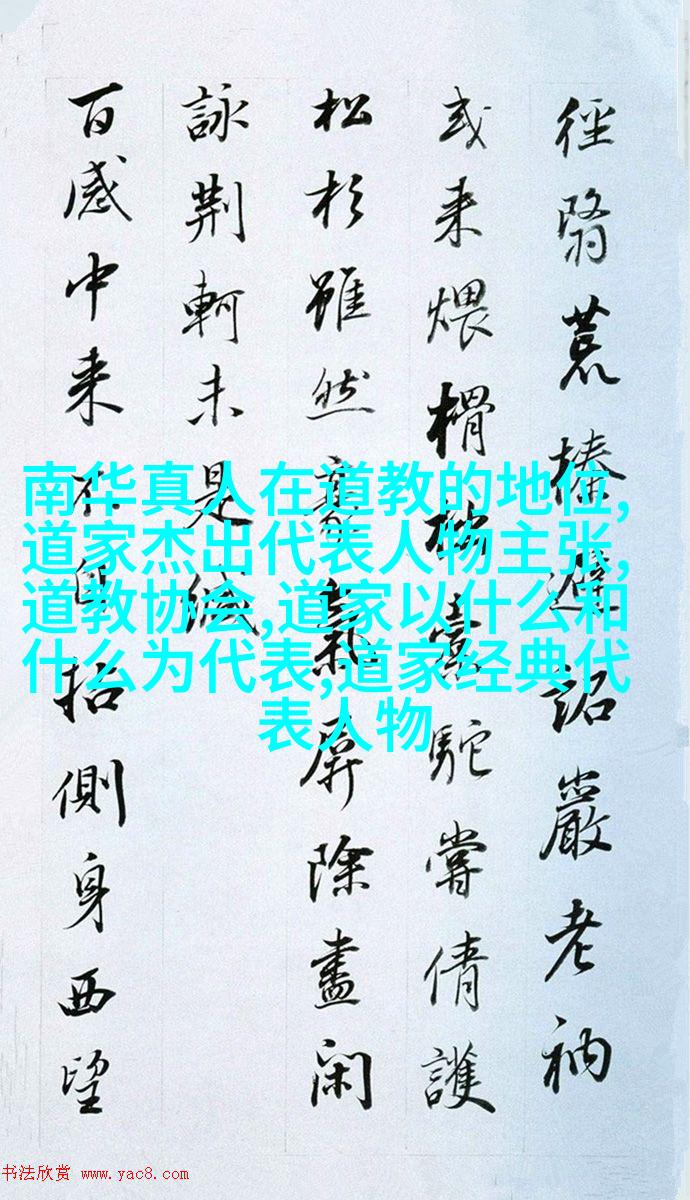 徑翳荒榛遲詔嚴老衲
或来煨榾柮橐駝嘗倩護
松杉雖然豪氣屏除盡闲
詠荆軻未是緘
百感中来不自 側身西望
南华真人在道教的地位,
道家杰出代表人物主张,
道教协会,道家以什么和
什么为代表,道家经典代
表人物
书法欣赏 www.yac8.com